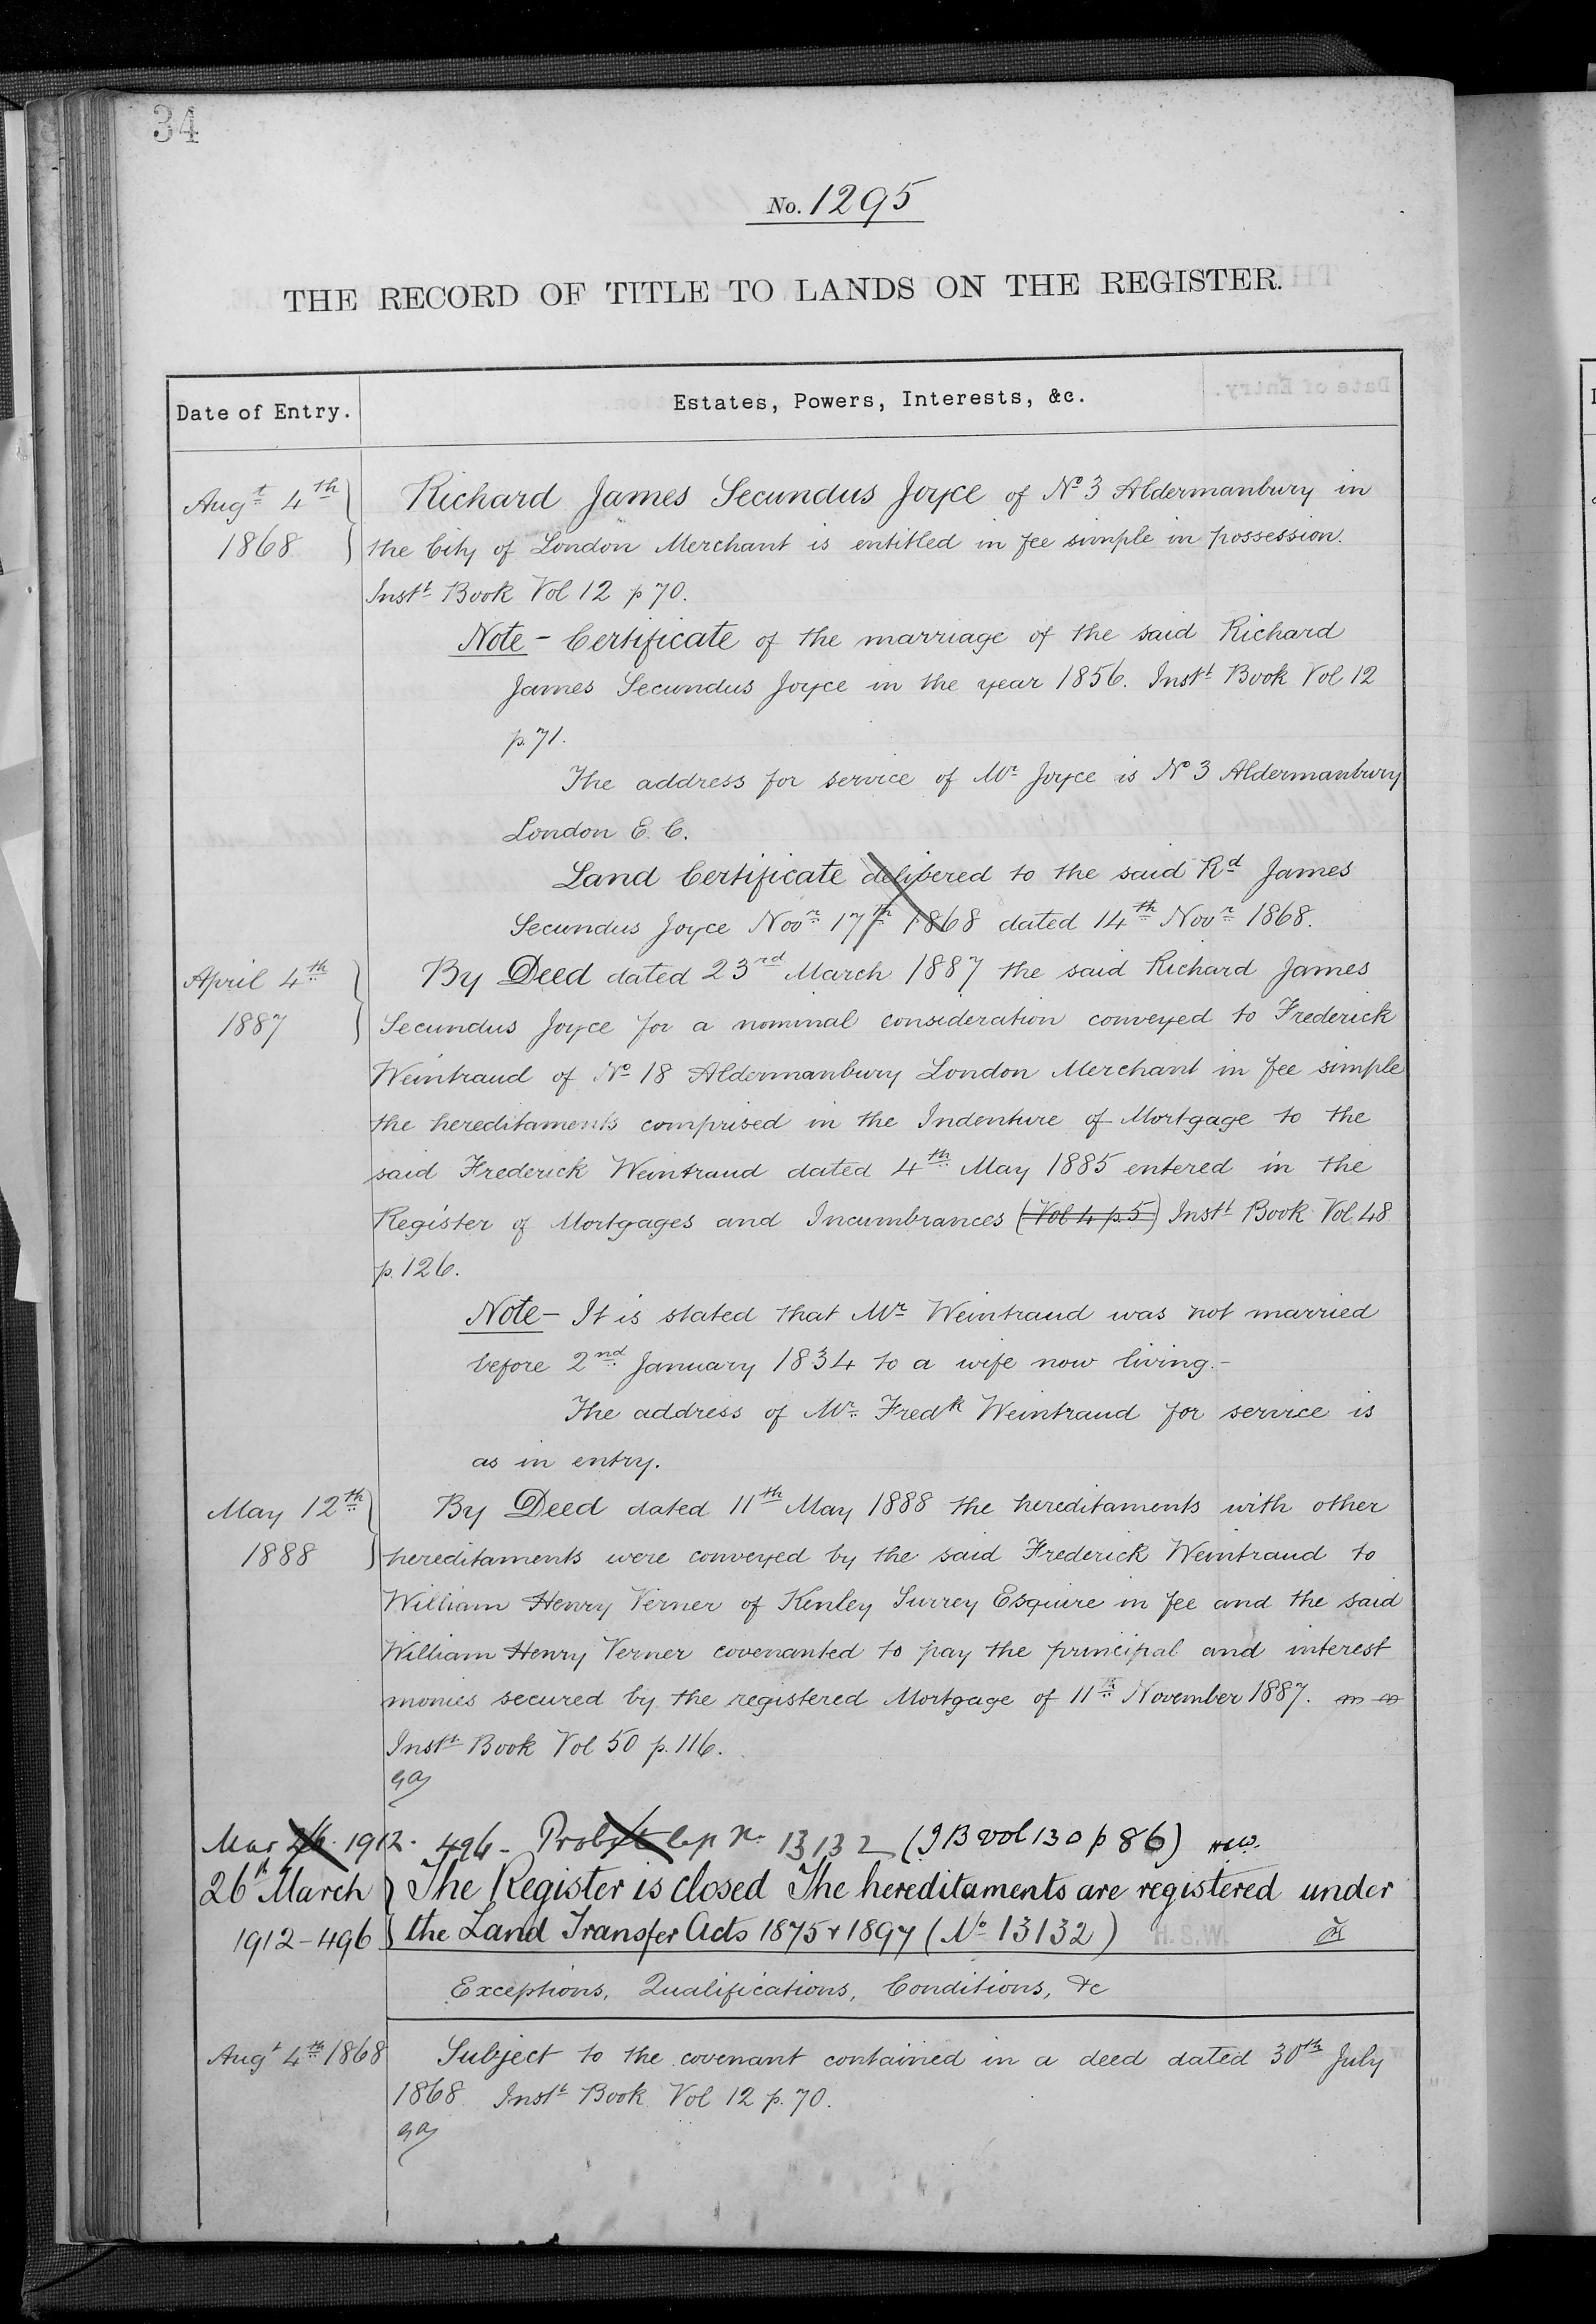 34
No. 1295
THE RECORD OF TITLE TO LANDS ON THE REGISTER.
Date of Entry.
Estates, Powers, Interests, &c.
Augt 4th
1868
Richard James Secundus Joyce of No 3 Aldermanbury in
the City of London Merchant is entitled in fee simple in possession.
Instt Book Vol 12 p 70.
Note - Certificate of the marriage of the said Richard
James Secundus Joyce in the year 1856. Instt Book Vol 12
p. 71.
The address for service of Mr Joyce is No 3 Aldermanbury
London E. C.
Land Certificate delivered to the said Rd James
Secundus Joyce Novr 17th 1868 dated 14th Novr 1868.
April 4th
1887
By Deed dated 23rd March 1887 the said Richard James
Secundus Joyce for a nominal consideration conveyed to Frederick
Weintraud of No 18 Aldermanbury London Merchant in fee simple
the hereditaments comprised in the Indenture of Mortgage to the
said Frederick Weintraud dated 4th May 1885 entered in the
Register of Mortgages and Incumbrances (Vol 4 p. 5) Instt Book Vol. 48
p. 126.
Note - It is stated that Mr Weintraud was not married
before 2nd January 1834 to a wife now living. -
The address of Mr Fredk Weintraud for service is
as in entry.
May 12th
1888
By Deed dated 11th May 1888 the hereditaments with other
hereditaments were conveyed by the said Frederick Weintraud to
William Henry Verner of Kenley Surrey Esquire in fee and the said
William Henry Verner covenanted to pay the principal and interest
monies secured by the registered Mortgage of 11th November 1887.
Instt Book Vol 50 p. 116.
Mar 26. 1912. 496 - 13132 (IB vol 130 p 86)
26th March
1912-496
The Register is closed The hereditaments are registered under
the Land Transfer Acts 1875 & 1897 (No 13132)
Exceptions, Qualifications, Conditions, &c
Augt 4th 1868
Subject to the covenant contained in a deed dated 30th July
1868 Instt Book Vol 12 p. 70.